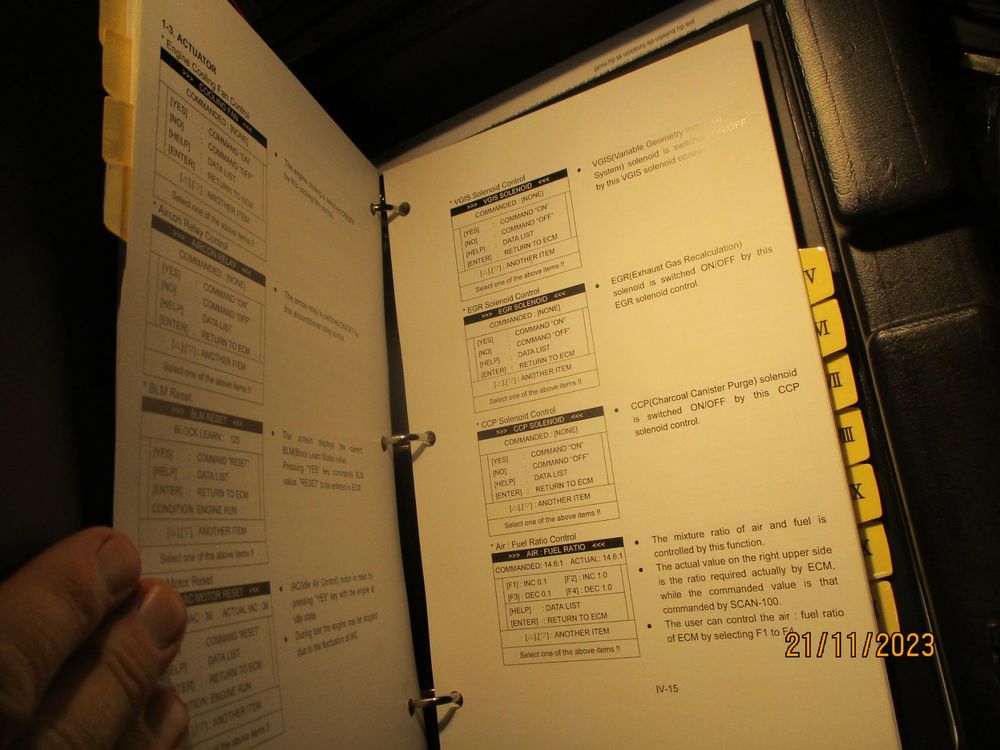 1-3. ACTUATOR
* Engine Cooling Fan Control
>>> COOLING FAN <<<
COMMANDED : [NONE]
[YES] : COMMAND "ON"
[NO] : COMMAND "OFF"
[HELP] : DATA LIST
[ENTER] : RETURN TO ECM
[△],[▽] : ANOTHER ITEM
Select one of the above items !!
• The engine cooling is switched ON/OFF
by this cooling fan control.
* Aircon Relay Control
>>> AIRCON RELAY <<<
COMMANDED : [NONE]
[YES] : COMMAND "ON"
[NO] : COMMAND "OFF"
[HELP] : DATA LIST
[ENTER] : RETURN TO ECM
[△],[▽] : ANOTHER ITEM
Select one of the above items !!
• The aircon relay is switched ON/OFF by
this airconditioner relay control.
* BLM Reset
>>> BLM RESET <<<
BLOCK LEARN : 123
[YES] : COMMAND "RESET"
[HELP] : DATA LIST
[ENTER] : RETURN TO ECM
CONDITION: ENGINE RUN
[△],[▽] : ANOTHER ITEM
Select one of the above items !!
• The screen displays the current
BLM(Block Learn Mode) value.
Pressing "YES" key commands BLM
value "RESET" to be entered in ECM.
Motor Reset
IAC MOTOR RESET <<<
IAC : 30 ACTUAL IAC : 36
: COMMAND "RESET"
: DATA LIST
: RETURN TO ECM
ENGINE RUN
: ANOTHER ITEM
one of the above items !!
• IAC(Idle Air Control) motor is reset by
pressing "YES" key with the engine at
idle state.
• During test the engine may be stopped
due to the fluctuation of IAC.
* VGIS Solenoid Control
>>> VGIS SOLENOID <<<
COMMANDED : [NONE]
[YES] : COMMAND "ON"
[NO] : COMMAND "OFF"
[HELP] : DATA LIST
[ENTER] : RETURN TO ECM
[△],[▽] : ANOTHER ITEM
Select one of the above items !!
• VGIS(Variable Geometry
System) solenoid is switched ON/OFF
by this VGIS solenoid control.
* EGR Solenoid Control
>>> EGR SOLENOID <<<
COMMANDED : [NONE]
[YES] : COMMAND "ON"
[NO] : COMMAND "OFF"
[HELP] : DATA LIST
[ENTER] : RETURN TO ECM
[△],[▽] : ANOTHER ITEM
Select one of the above items !!
• EGR(Exhaust Gas Recalculation)
solenoid is switched ON/OFF by this
EGR solenoid control.
* CCP Solenoid Control
>>> CCP SOLENOID <<<
COMMANDED : [NONE]
[YES] : COMMAND "ON"
[NO] : COMMAND "OFF"
[HELP] : DATA LIST
[ENTER] : RETURN TO ECM
[△],[▽] : ANOTHER ITEM
Select one of the above items !!
• CCP(Charcoal Canister Purge) solenoid
is switched ON/OFF by this CCP
solenoid control.
* Air : Fuel Ratio Control
>>> AIR : FUEL RATIO <<<
COMMANDED: 14.6:1 ACTUAL: 14.6:1
[F1] : INC 0.1 [F2] : INC 1.0
[F3] : DEC 0.1 [F4] : DEC 1.0
[HELP] : DATA LIST
[ENTER] : RETURN TO ECM
[△],[▽] : ANOTHER ITEM
Select one of the above items !!
• The mixture ratio of air and fuel is
controlled by this function.
• The actual value on the right upper side
is the ratio required actually by ECM,
while the commanded value is that
commanded by SCAN-100.
• The user can control the air : fuel ratio
of ECM by selecting F1 to F4.
IV-15
V
VI
VII
III
X
21/11/2023